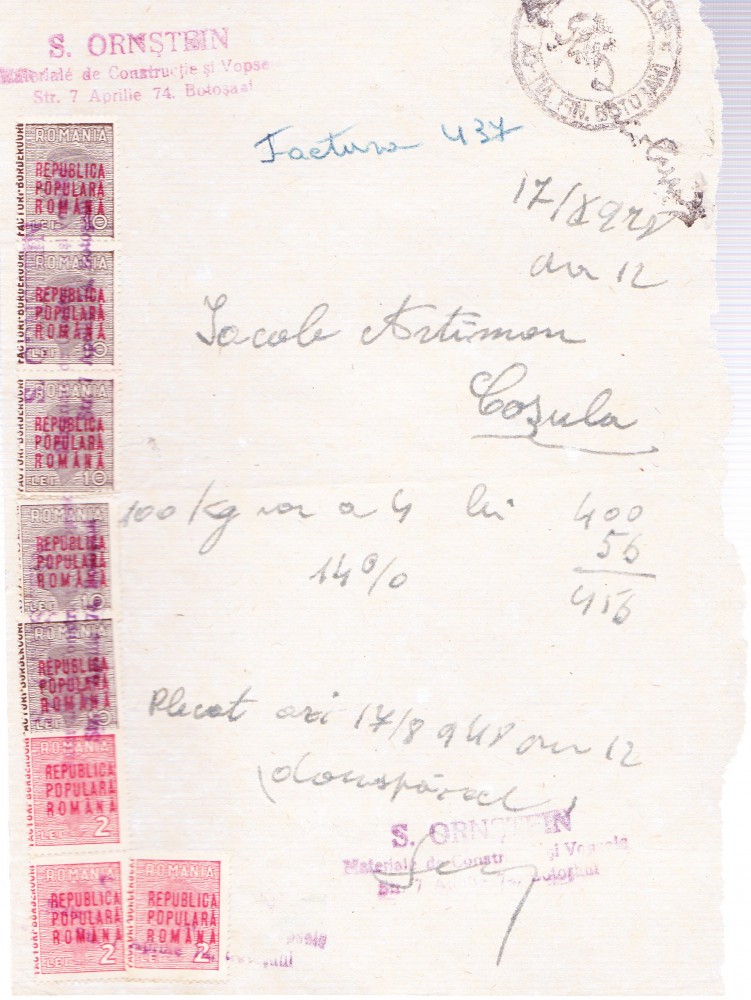 S. ORNȘTEIN
Materiale de Construcție și Vopse
Str. 7 Aprilie 74. Botoșani
FIN. BOTOȘANI
Factura 437
17/8 948
ora 12
Iacob Artimon
Cozula
100 kg var a 4 lei 400
14% 56
456
Plecat azi 17/8 948 ora 12
(douăsprezece)
S. ORNȘTEIN
Materiale de Constr și Vopsele
Str. 7 Aprilie 74. Botoșani
FACTURI-BORDEROURI
ROMANIA
REPUBLICA
POPULARĂ
ROMÂNĂ
LEI 10
FACTURI-BORDEROURI
ROMANIA
REPUBLICA
POPULARĂ
ROMÂNĂ
LEI 10
FACTURI-BORDEROURI
ROMANIA
REPUBLICA
POPULARĂ
ROMÂNĂ
LEI 10
FACTURI-BORDEROURI
ROMANIA
REPUBLICA
POPULARĂ
ROMÂNĂ
LEI 10
FACTURI-BORDEROURI
ROMANIA
REPUBLICA
POPULARĂ
ROMÂNĂ
LEI 10
FACTURI-BORDEROURI
ROMANIA
REPUBLICA
POPULARĂ
ROMÂNĂ
LEI 2
FACTURI-BORDEROURI
ROMANIA
REPUBLICA
POPULARĂ
ROMÂNĂ
LEI 2
FACTURI-BORDEROURI
ROMANIA
REPUBLICA
POPULARĂ
ROMÂNĂ
LEI 2